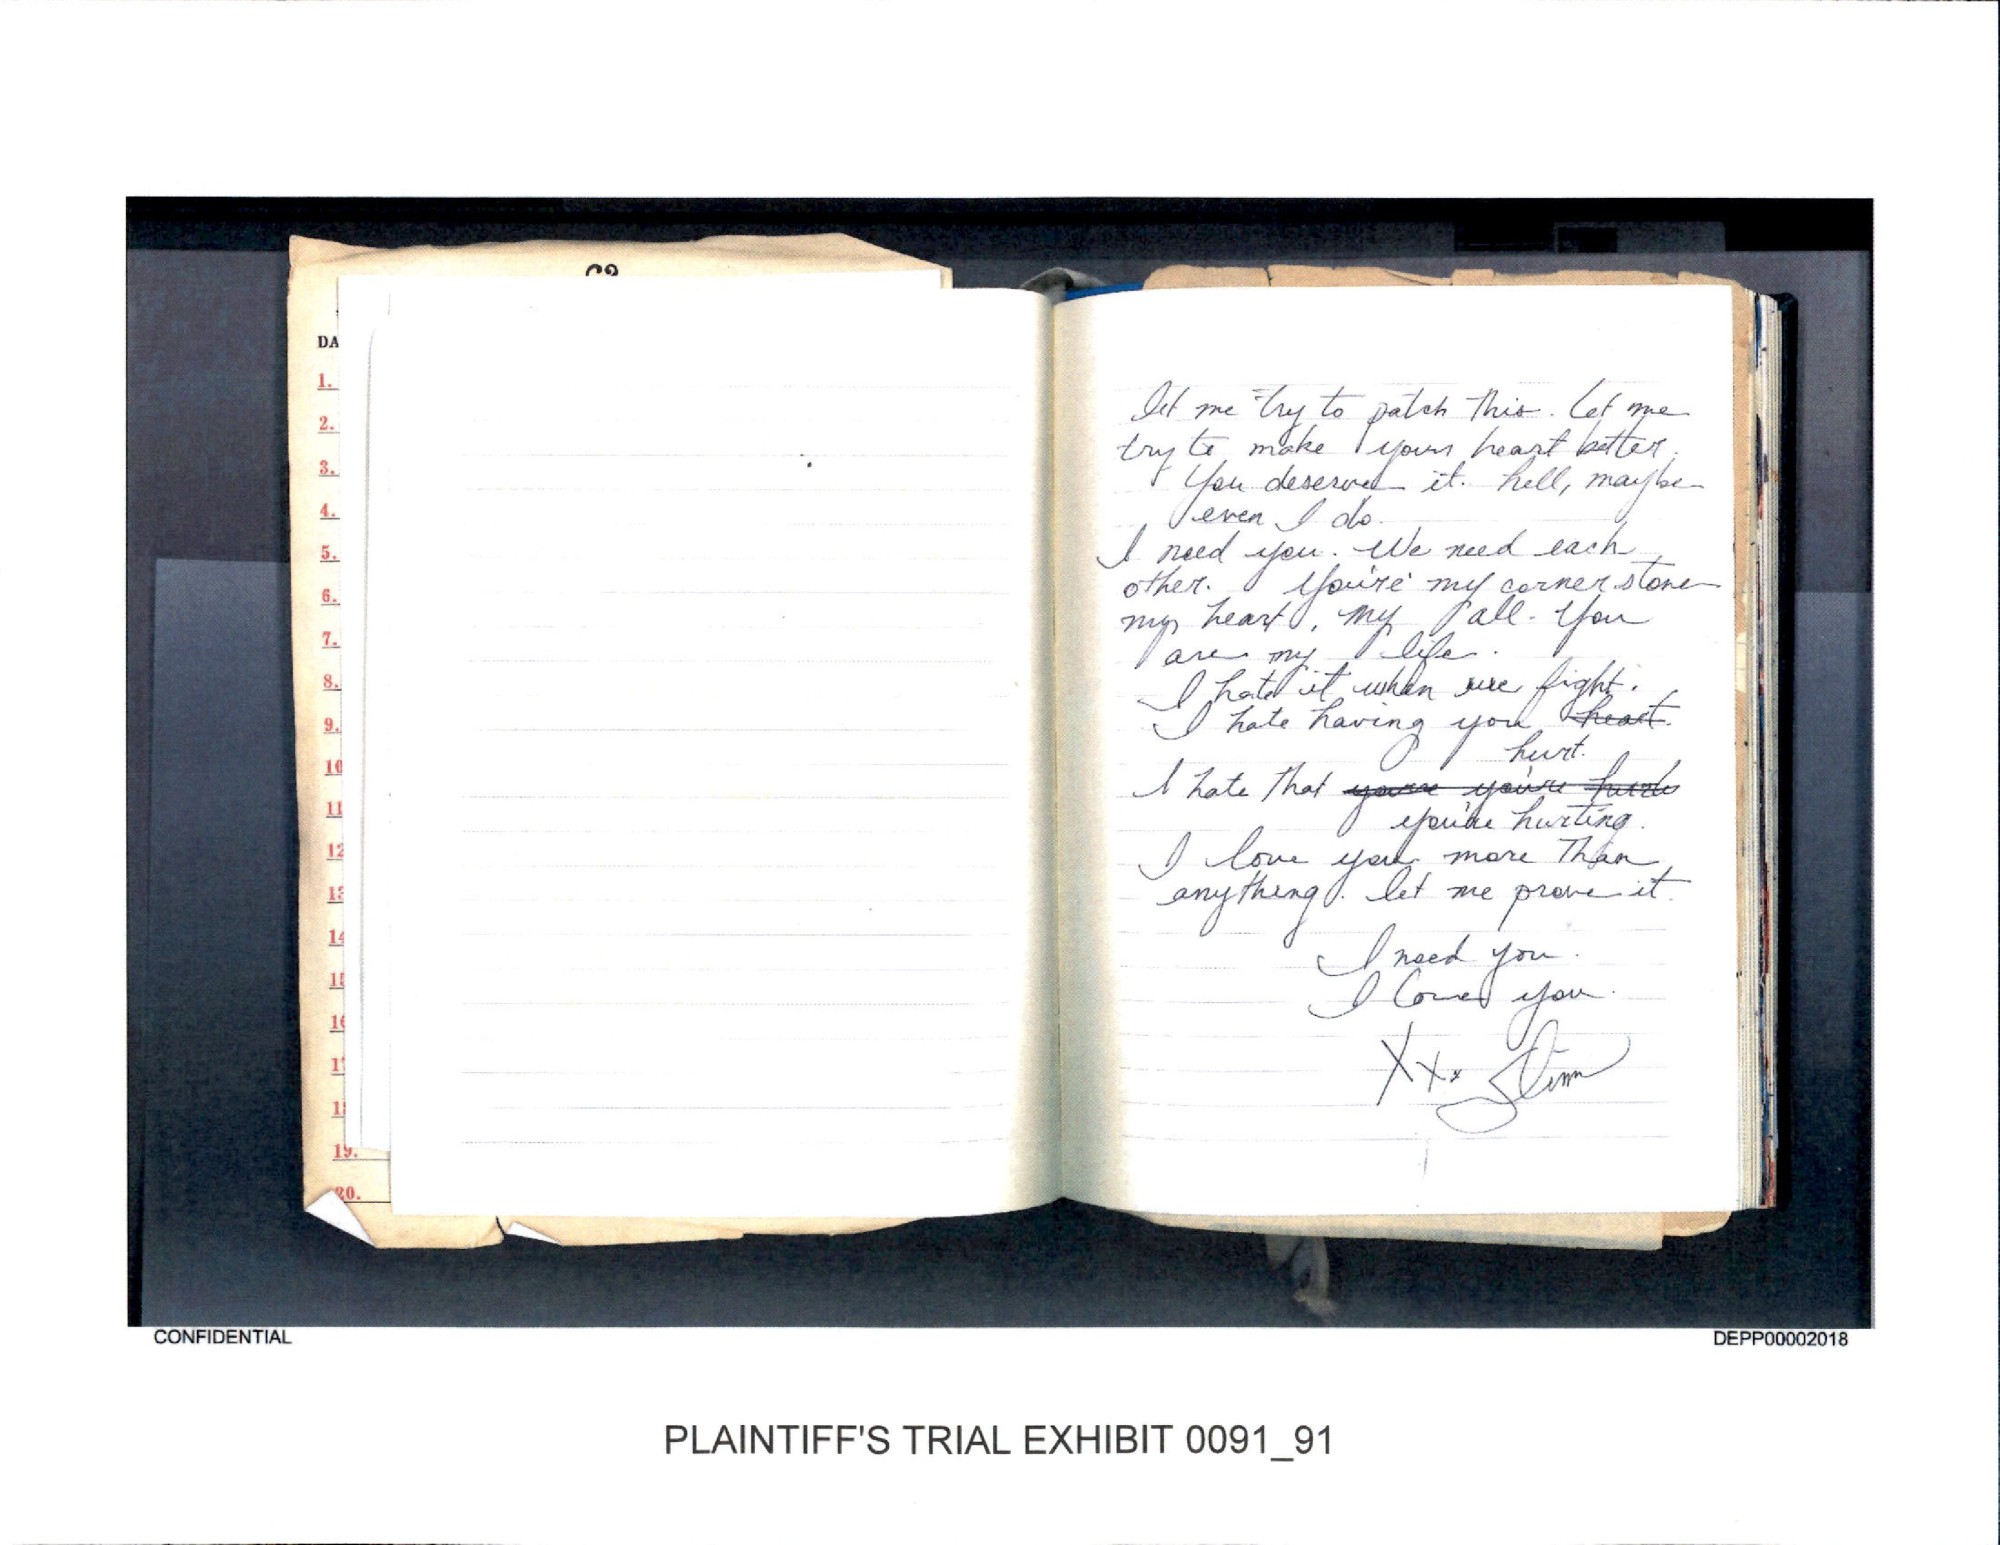 DA
1.
2.
3.
4.
5.
6.
7.
8.
9.
10
11
12
13
14
15
16
17
18
19.
20.
let me try to patch this. Let me
try to make your heart better.
You deserve it. hell, maybe
even I do.
I need you. We need each
other. You're my corner stone
my heart, my all. You
are my life.
I hate it when we fight.
I hate having you heart.
hurt.
I hate that you're hurt
you're hurting.
I love you more than
anything. let me prove it.
I need you.
I love you.
xxx
CONFIDENTIAL
DEPP00002018
PLAINTIFF'S TRIAL EXHIBIT 0091_91